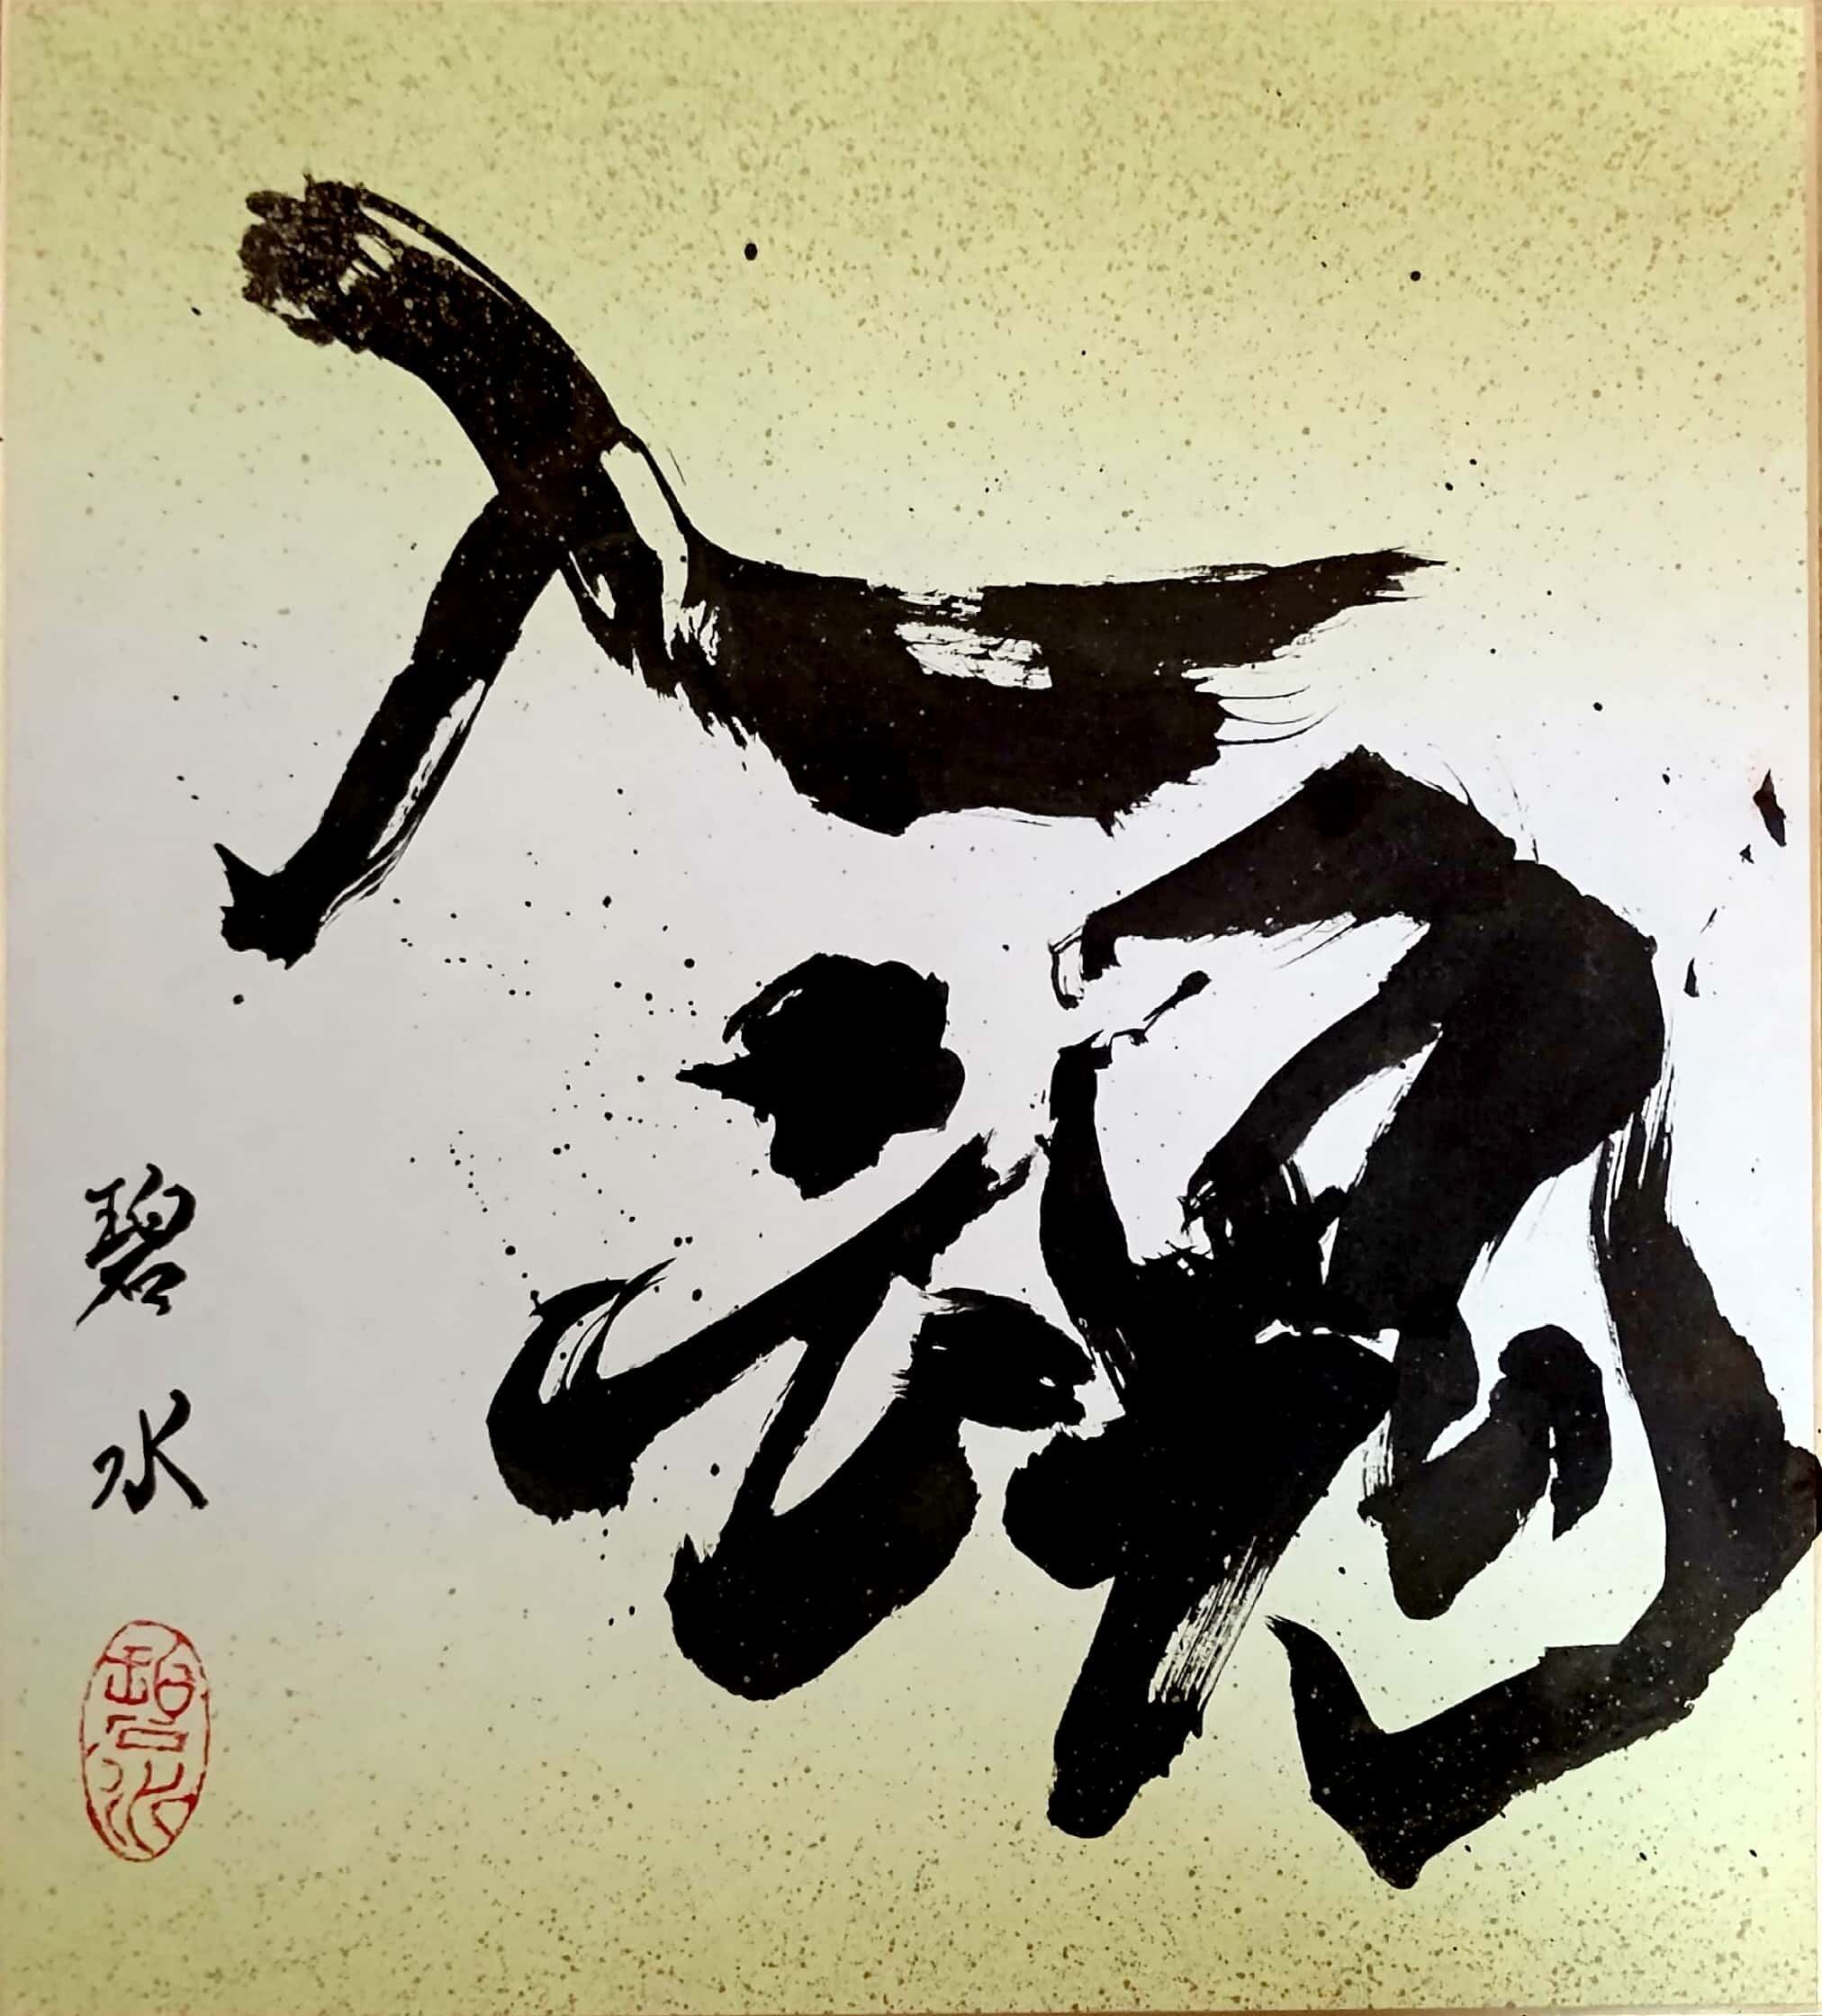 入魂
碧水
碧水